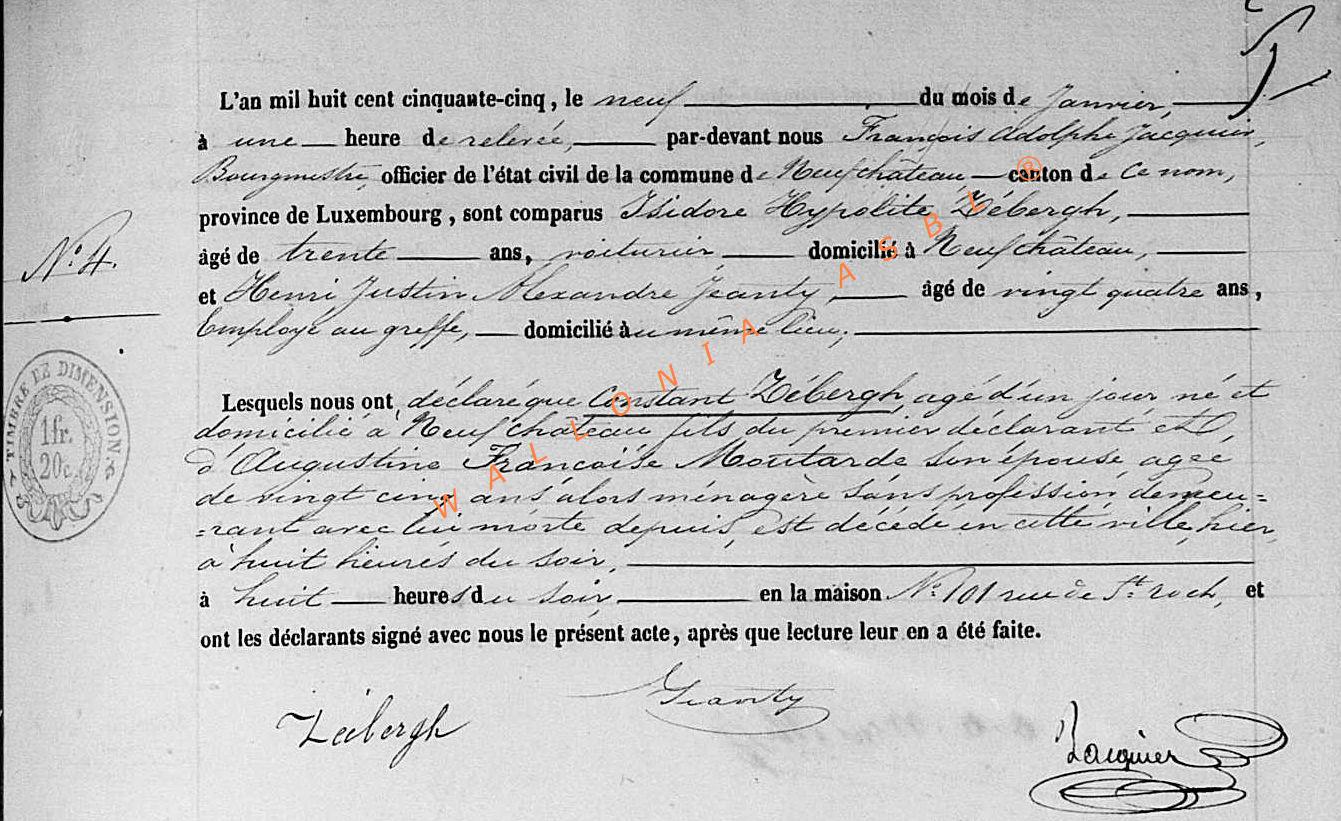 L'an mil huit cent cinquante-cinq, le neuf du mois de Janvier,
à une heure de relevée, par-devant nous François Adolphe Jacquier,
Bourgmestre, officier de l'état civil de la commune de Neufchâteau canton de Ce nom,
province de Luxembourg, sont comparus Isidore Hypolite Zébergh,
âgé de trente ans, voiturier, domicilié à Neufchâteau,
N° 4.
et Henri Justin Alexandre Jeanty, âgé de vingt quatre ans,
Employé au greffe, domicilié àu même lieu;
TIMBRE DE DIMENSION
1 fr.
20c.
Lesquels nous ont déclaré que Constant Zébergh, agé d'un jour né et
domicilié à Neufchâteau fils du premier déclarant et
d'Augustine Francoise Moutarde son épouse, agée
de vingt cinq ans alors ménagère sans profession demeu=
=rant avec lui morte depuis, est décédé en cette ville, hier,
à huit heures du soir,
à huit heures du soir, en la maison N° 101 rue de St. roch, et
ont les déclarants signé avec nous le présent acte, après que lecture leur en a été faite.
Zébergh
Jeanty
Jacquier
WALLONIA ASBL ®